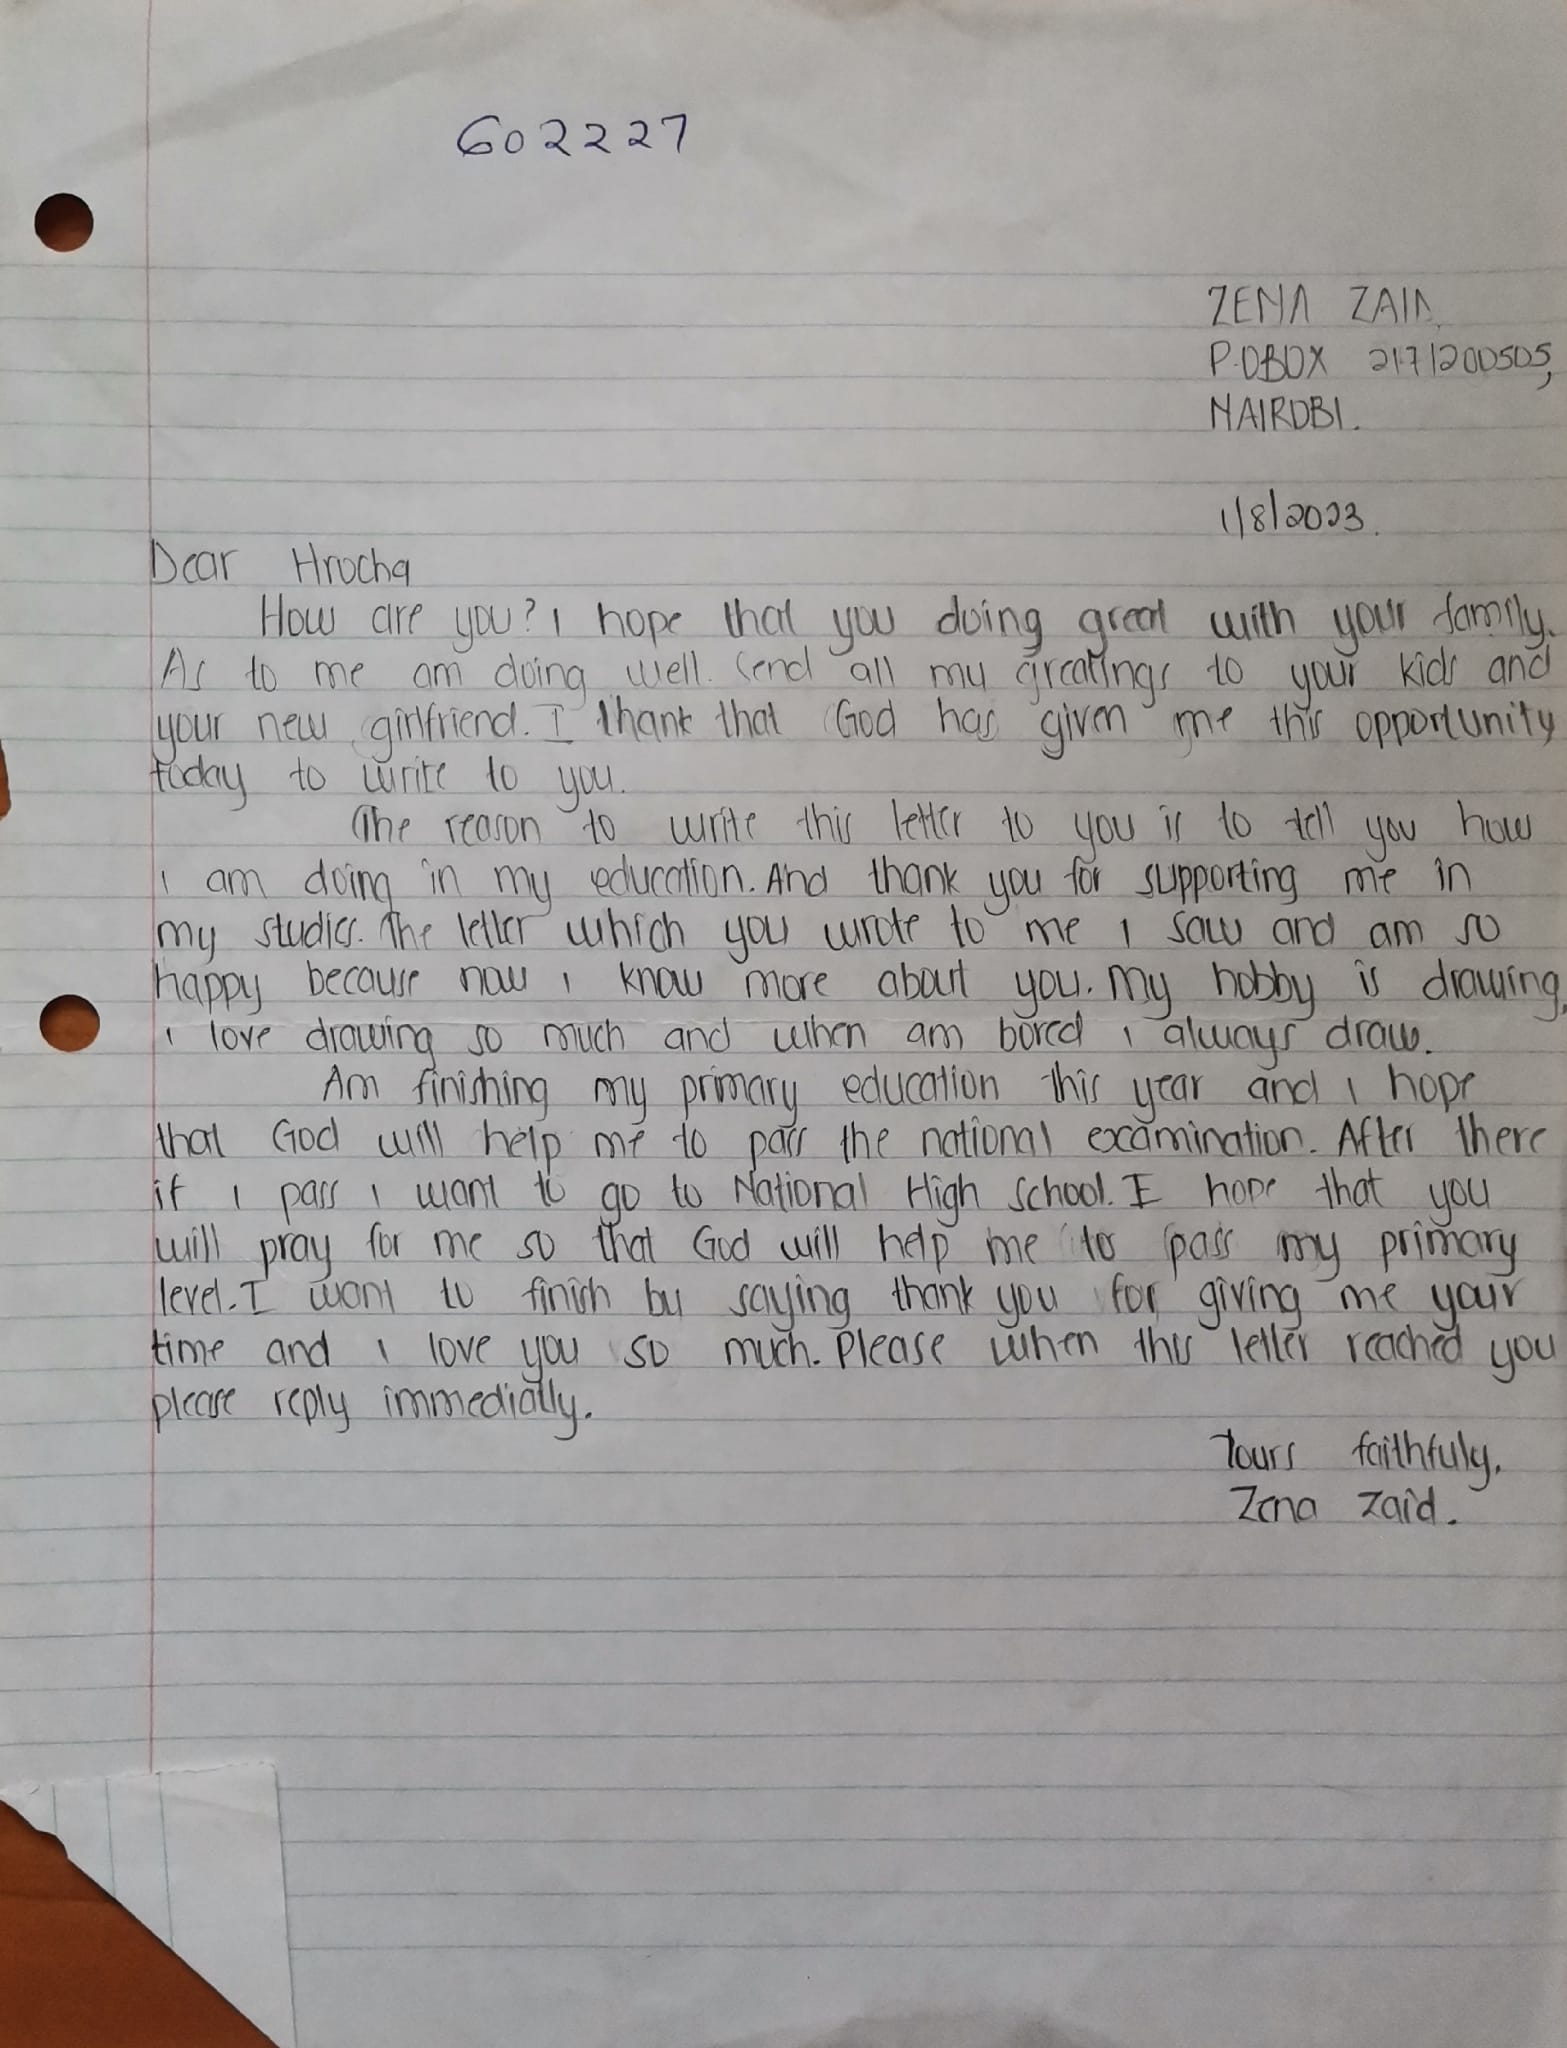 602227
ZENA ZAID,
P.OBOX 2171200505,
NAIROBI.
1/8/2023.
Dear Hrocha
How are you? I hope that you doing great with your family.
As to me am doing well. Send all my greatings to your kids and
your new girlfriend. I thank that God has given me this opportunity
today to write to you.
The reason to write this letter to you is to tell you how
I am doing in my education. And thank you for supporting me in
my studies. The letter which you wrote to me I saw and am so
happy because now I know more about you. My hobby is drawing,
I love drawing so much and when am bored I always draw.
Am finishing my primary education this year and I hope
that God will help me to pass the national examination. After there
if I pass I want to go to National High School. I hope that you
will pray for me so that God will help me to pass my primary
level. I want to finish by saying thank you for giving me your
time and I love you so much. Please when this letter reached you
please reply immediatly.
Yours faithfuly,
Zena Zaid.